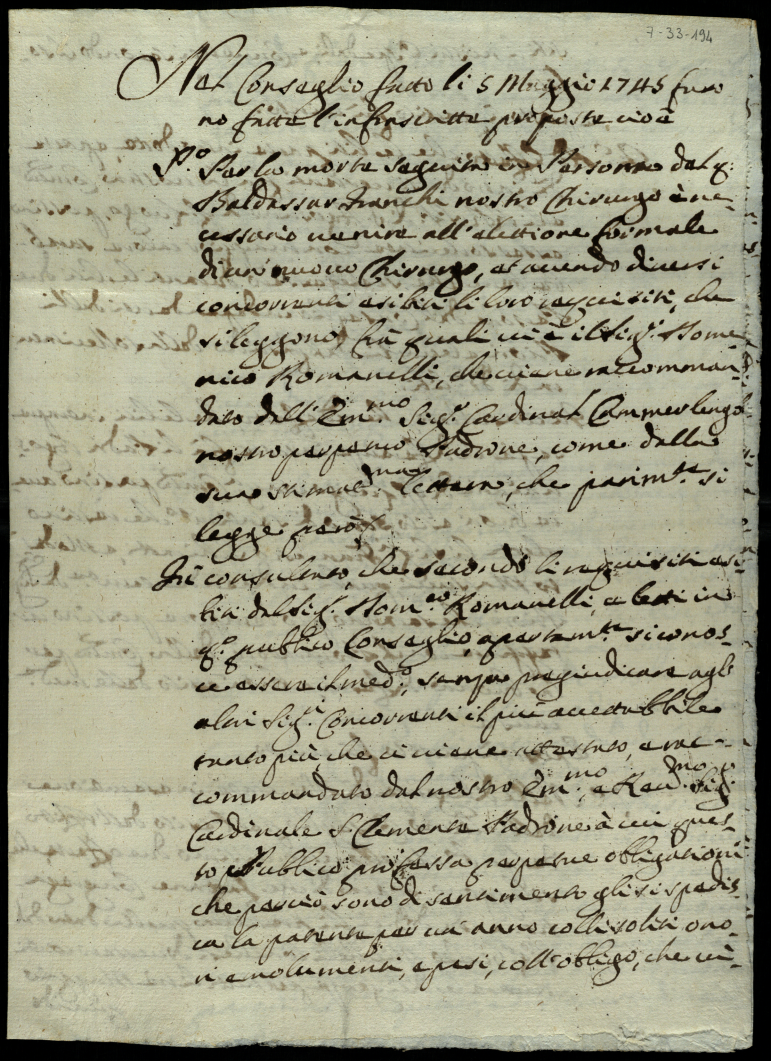 7-33-194
Nel Conseglio fatto li 5 Maggio 1745 furo
no fatte l'infrascritte proposte cioè
P.º Per la morte seguita in Persona del q:
Baldassar Franchi nostro Chirurgo è ne-
cessario venire all'elettione formale
di un nuovo Chirurgo, et avendo diversi
concorrenti esibiti li loro requisiti, che
si leggono, frà quali vi è il Sig.r Dome-
nico Romanelli, che viene raccomman-
dato dall'Em.mo Sig.r Cardinal Cammerlengo
nostro perpetuo Padrone, come dalla
sua stimat.ma lettera, che parim.te si
legge però
Fù consulato, che secondo li requisiti esi-
biti dal Sig.r Dom.co Romanelli, e letti in
q.º publico Conseglio, apertam.te si conos-
ce essere il med.º, senza pregiudicare agl'
altri Sig.ri Concorrenti il più accettabbile
tanto più che ci viene attestato, e rac-
commandato dal nostro Em.mo, e Rev.mo Sig.r
Cardinale S. Clemente Padrone à cui ques-
to Publico professa perpetue obligationi
che perciò sono di sentimento gli si spedis-
ca la patente per un'anno colli soliti ono-
ri emolumenti, e pesi, coll'obligo, che vi-